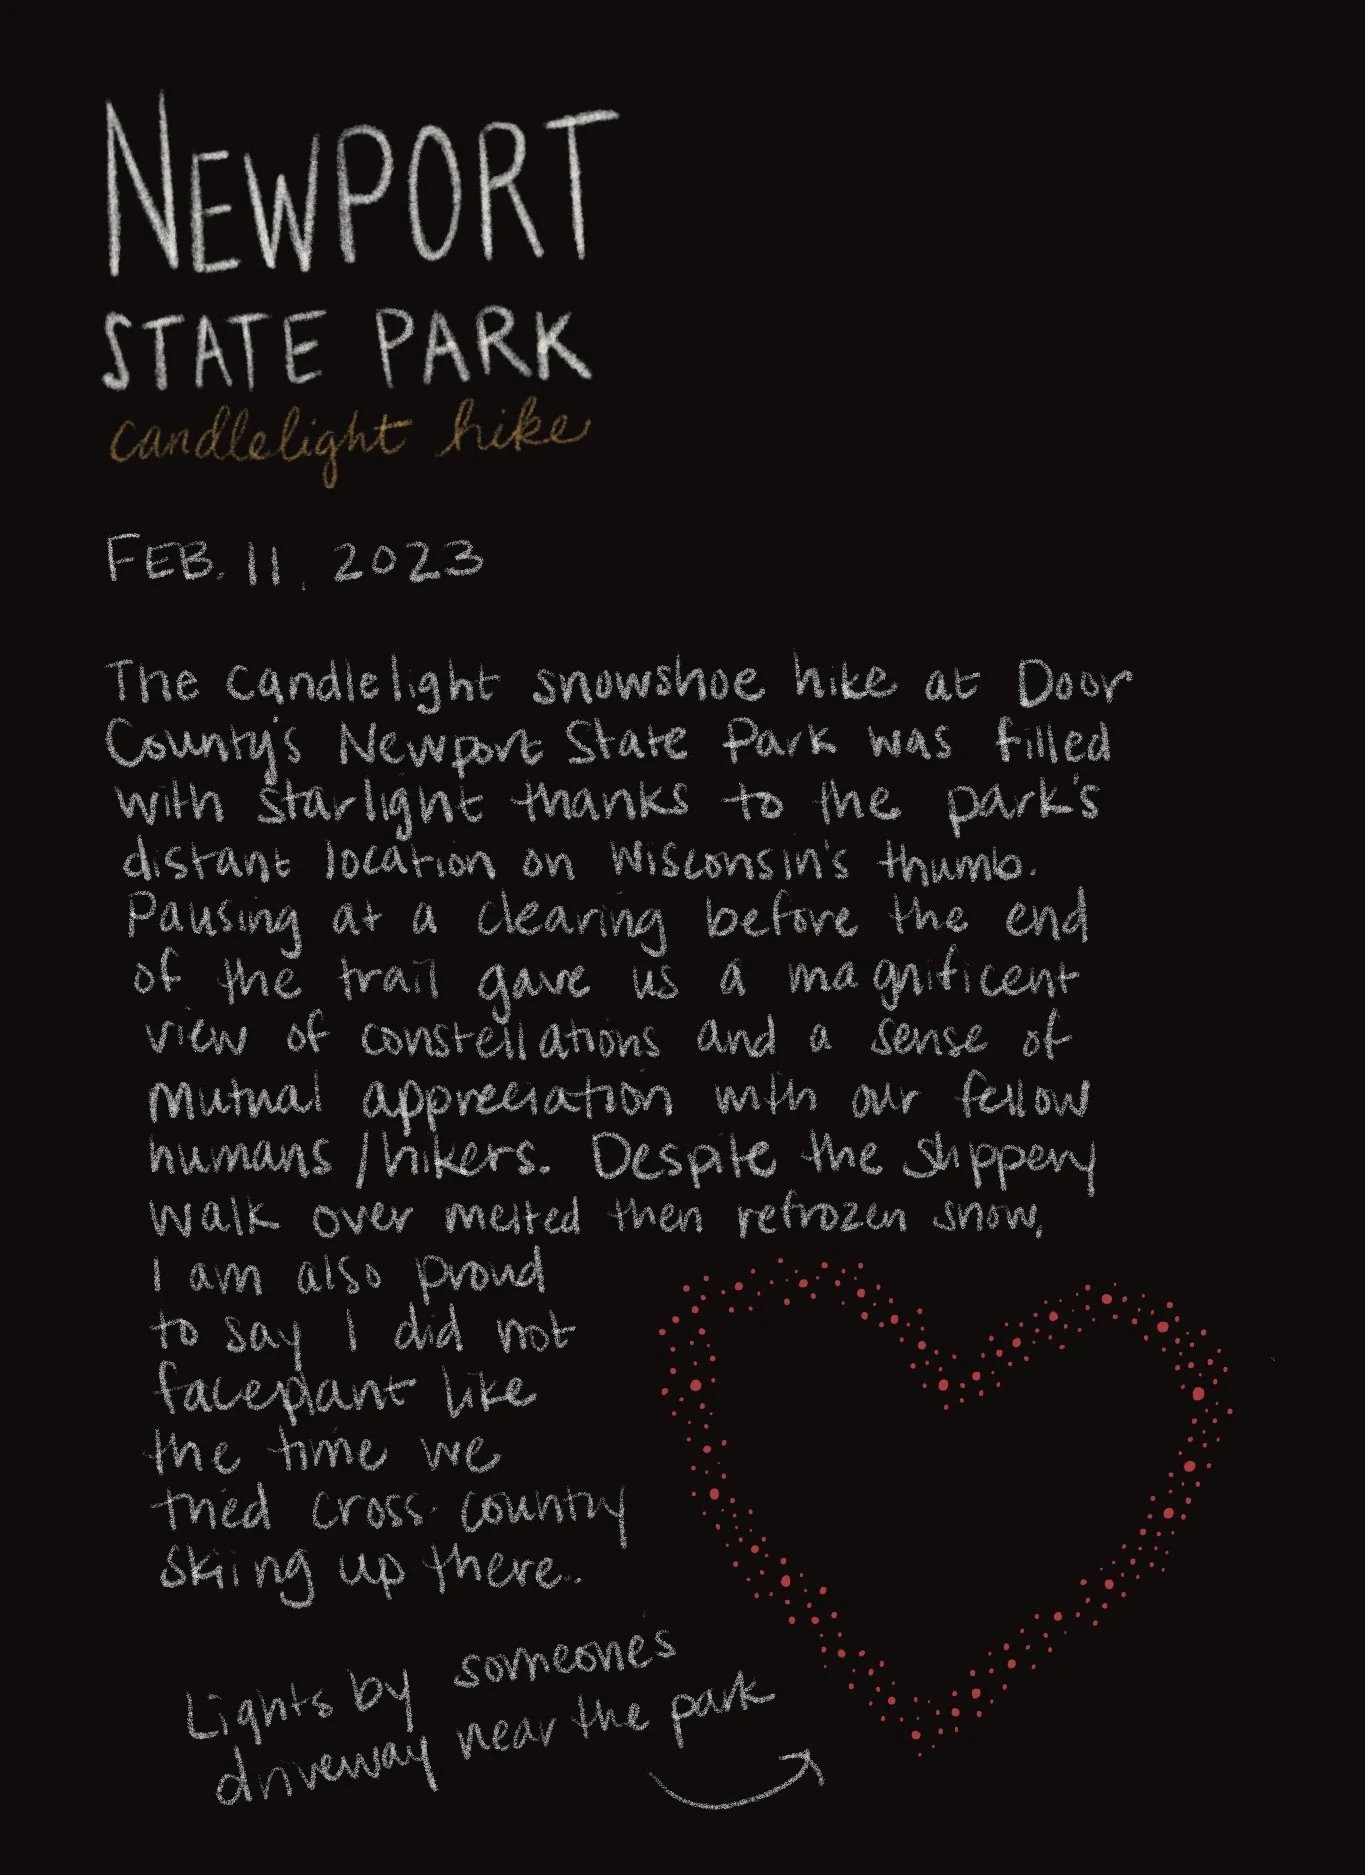 NEWPORT
STATE PARK
candlelight hike
FEB. 11, 2023
The candlelight snowshoe hike at Door
County's Newport State Park was filled
with starlight thanks to the park's
distant location on Wisconsin's thumb.
Pausing at a clearing before the end
of the trail gave us a magnificent
view of constellations and a sense of
mutual appreciation with our fellow
humans/hikers. Despite the slippery
walk over melted then refrozen snow,
I am also proud
to say I did not
faceplant like
the time we
tried cross-country
skiing up there.
Lights by someones
driveway near the park